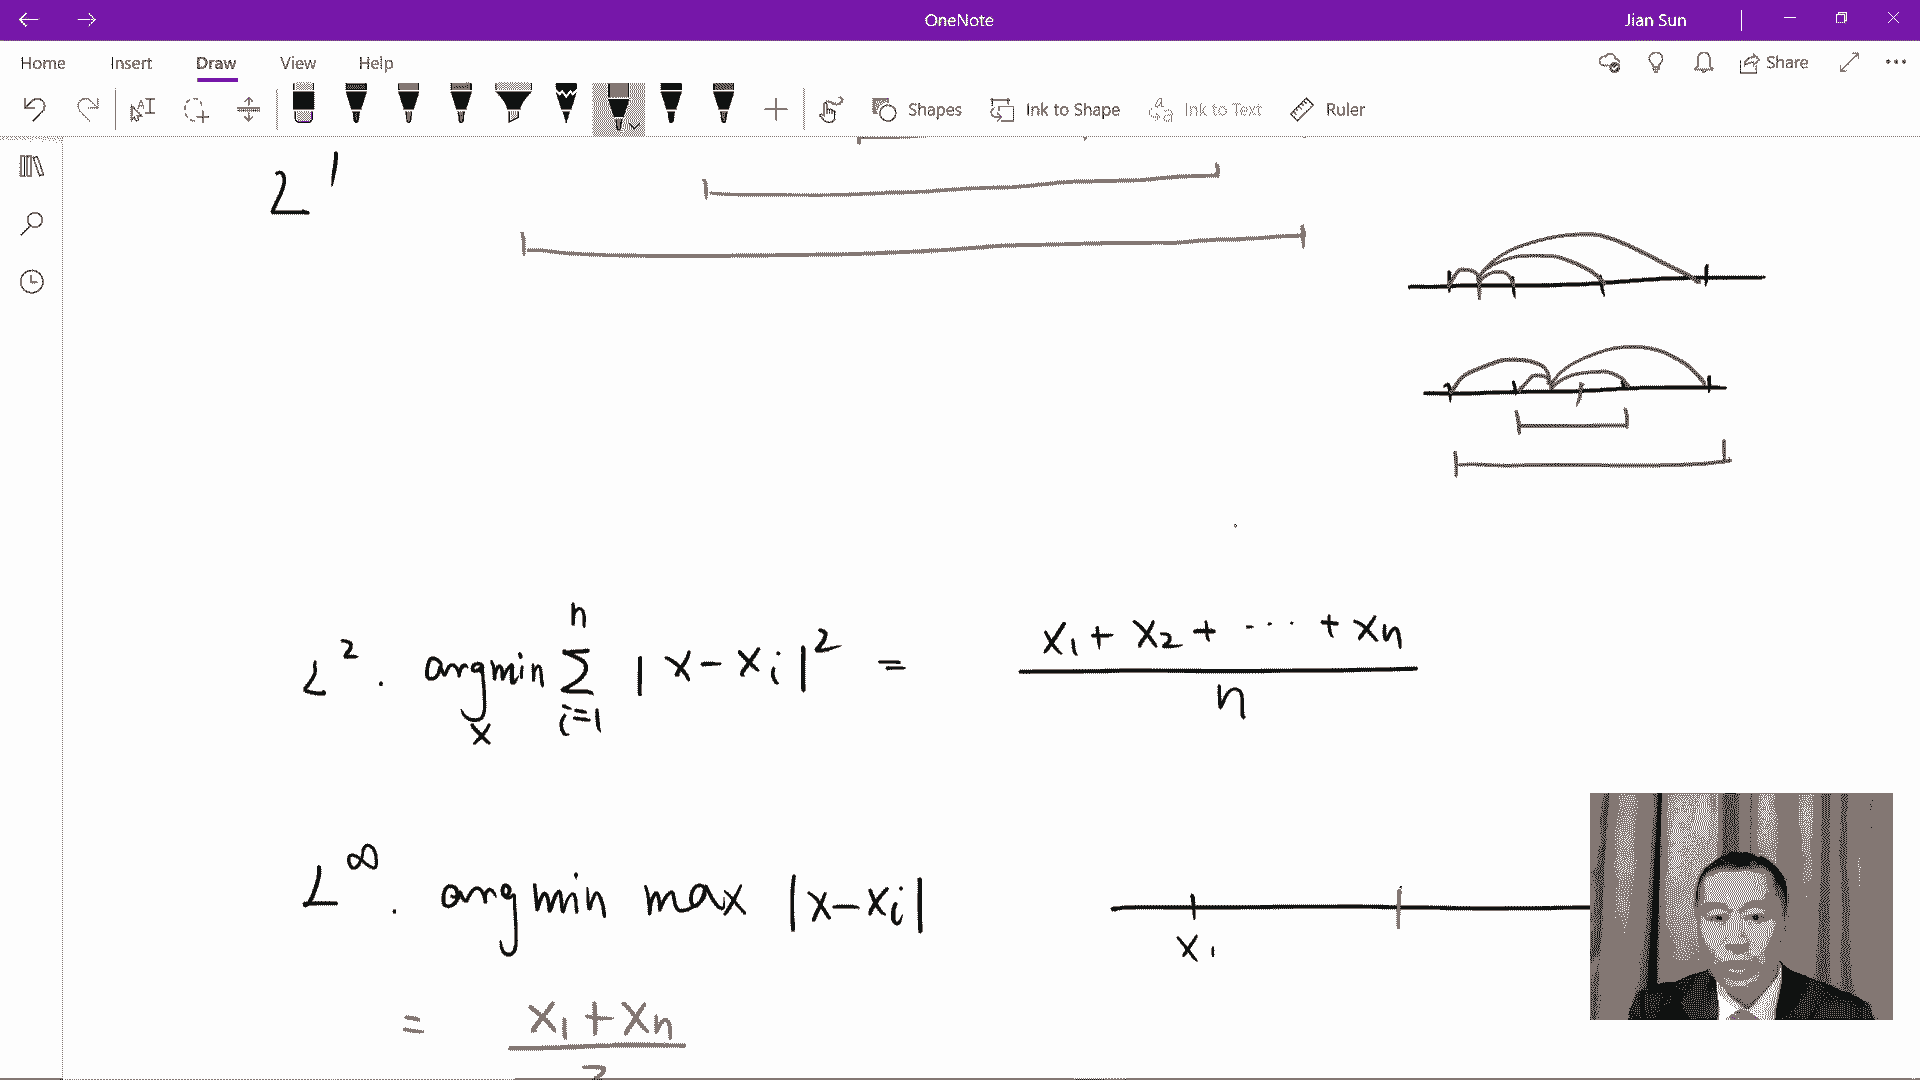 OneNote
Jian Sun
Home Insert Draw View Help
Share
Shapes Ink to Shape Ink to Text Ruler
L¹
L². argmin_x ∑_{i=1}^{n} |x - x_i|² = (x₁ + x₂ + ··· + x_n) / n
L^∞. argmin max |x - x_i|
x₁
= (x₁ + x_n) /